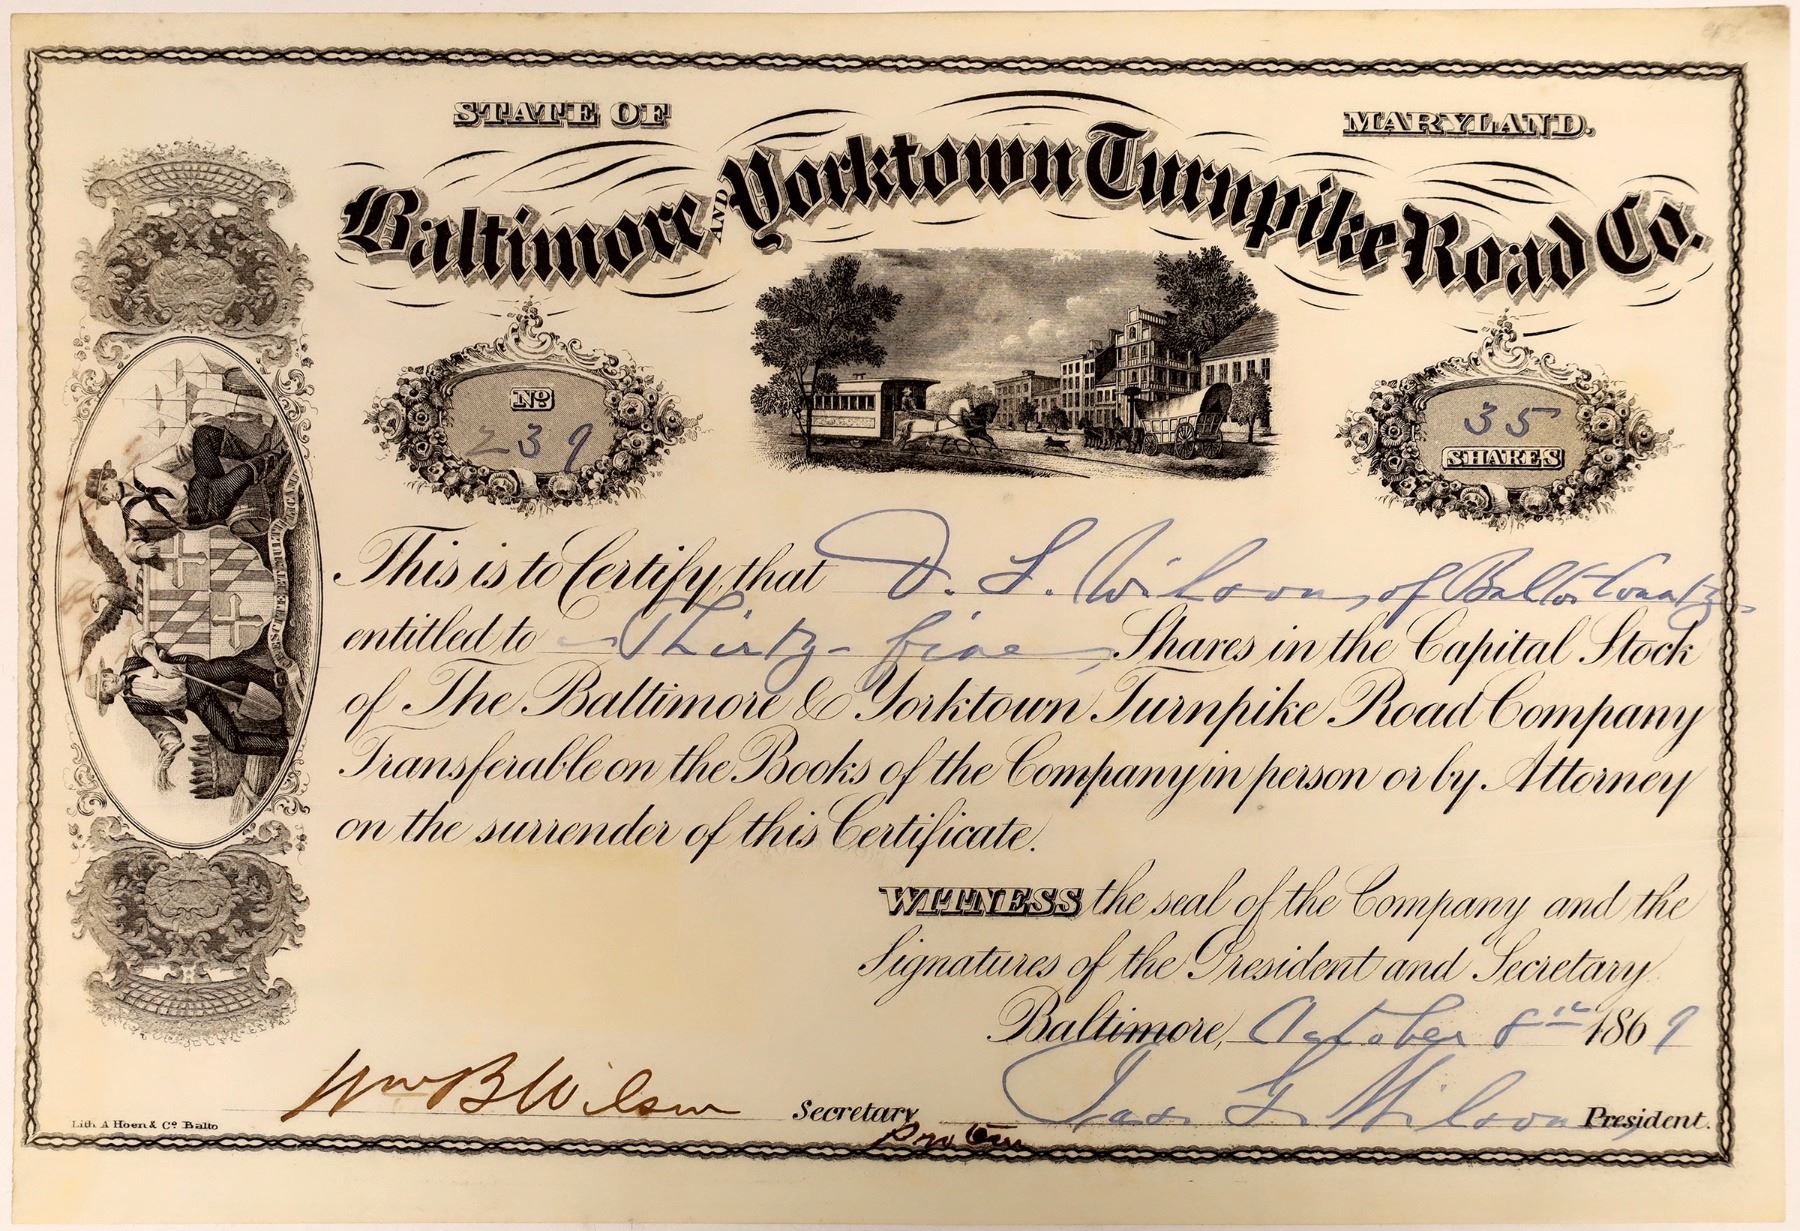 STATE OF MARYLAND.
Baltimore AND Yorktown Turnpike Road Co.
No 239
35 SHARES
CRESCITE ET MULTIPLICAMINI
This is to Certify, that D. S. Wilson, of Balto County
entitled to Thirty-five Shares in the Capital Stock
of The Baltimore & Yorktown Turnpike Road Company
Transferable on the Books of the Company in person or by Attorney
on the surrender of this Certificate.
WITNESS the seal of the Company and the
Signatures of the President and Secretary
Baltimore, October 8th 1869
Wm B Wilson Secretary Jas. G. Wilson, President.
Pro Tem
Lith. A Hoen & Co. Balto